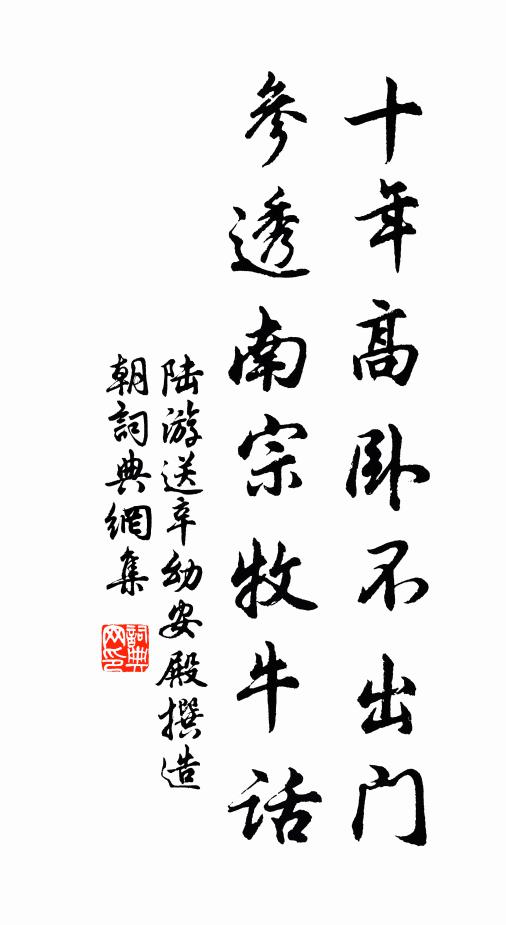 十年高卧不出门
參透南宗牧牛话
陆游送辛幼安殿撰造
朝詞典網集
詞典
网印